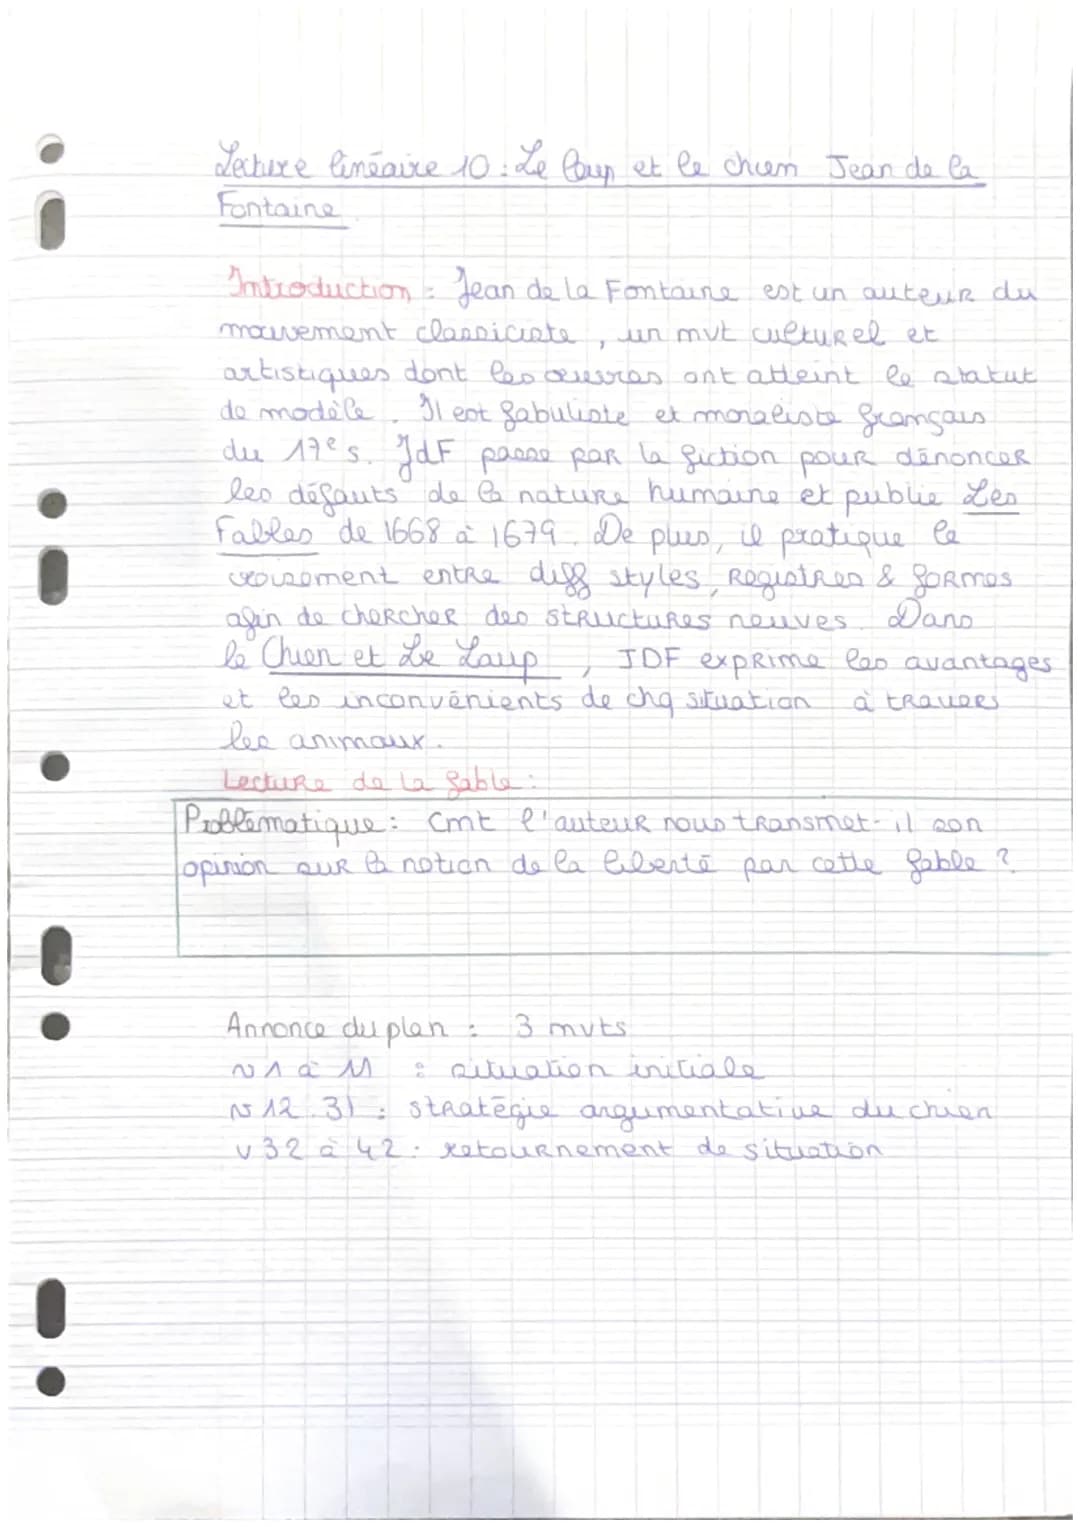 Lecture linéaire 10 : Le loup et le chien Jean de la
Fontaine
Introduction : Jean de la Fontaine est un auteur du
mouvement classiciste, un mvt culturel et
artistiques dont les œuvres ont atteint le statut
de modèle. Il est fabuliste et moraliste français
du 17e s. JdF passe par la fiction pour dénoncer
les défauts de la nature humaine et publie Les
Fables de 1668 à 1679. De plus, il pratique le
croisement entre diff styles, registres & formes
afin de chercher des structures neuves. Dans
le Chien et Le Loup, JDF exprime les avantages
et les inconvénients de chq situation à travers
les animaux.
Lecture de la fable :
Problématique : Cmt l'auteur nous transmet-il son
opinion sur la notion de la liberté par cette fable ?
Annonce du plan : 3 mvts
v 1 à 11 : situation initiale
v 12.31 : stratégie argumentative du chien
v 32 à 42 : retournement de situation